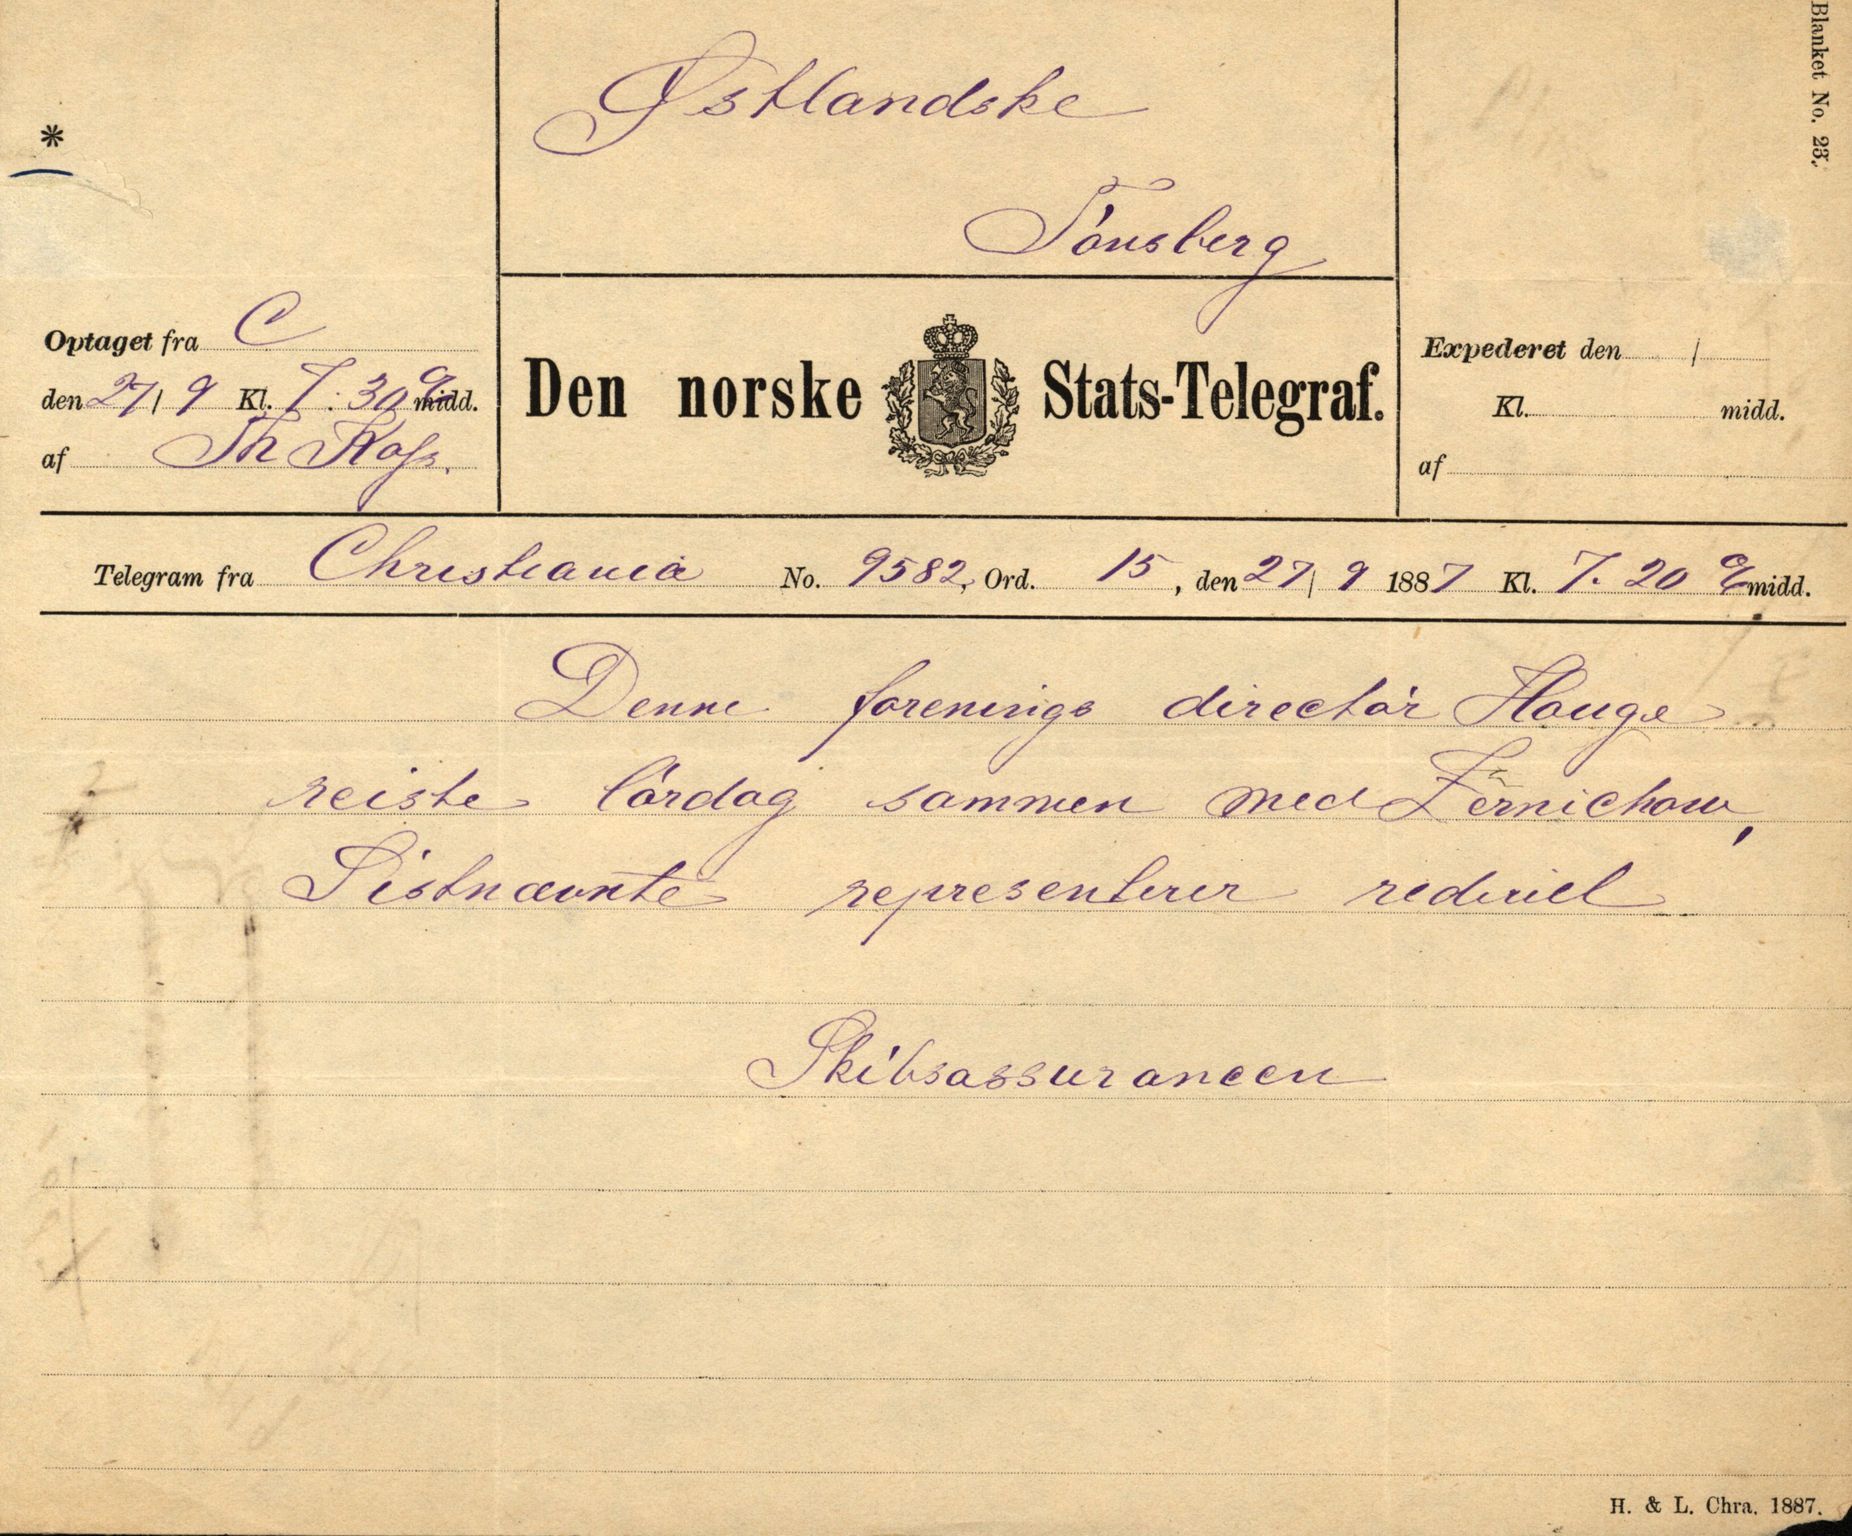 Blanket No. 23.
*
Østlandske
Tónsberg
Optaget fra C
den 27/9 Kl. 7:30 e midd.
af Th
Den norske Stats-Telegraf.
Expederet den /
Kl. midd.
af
Telegram fra Christiania No. 9582, Ord. 15, den 27/9 1887 Kl. 7.20 e midd.
Denne forenings directór Houge
reiste lórdag sammen med Zernichow,
Sistnævnte representerer rederiet
Skibsassurancen
H. & L. Chra. 1887.